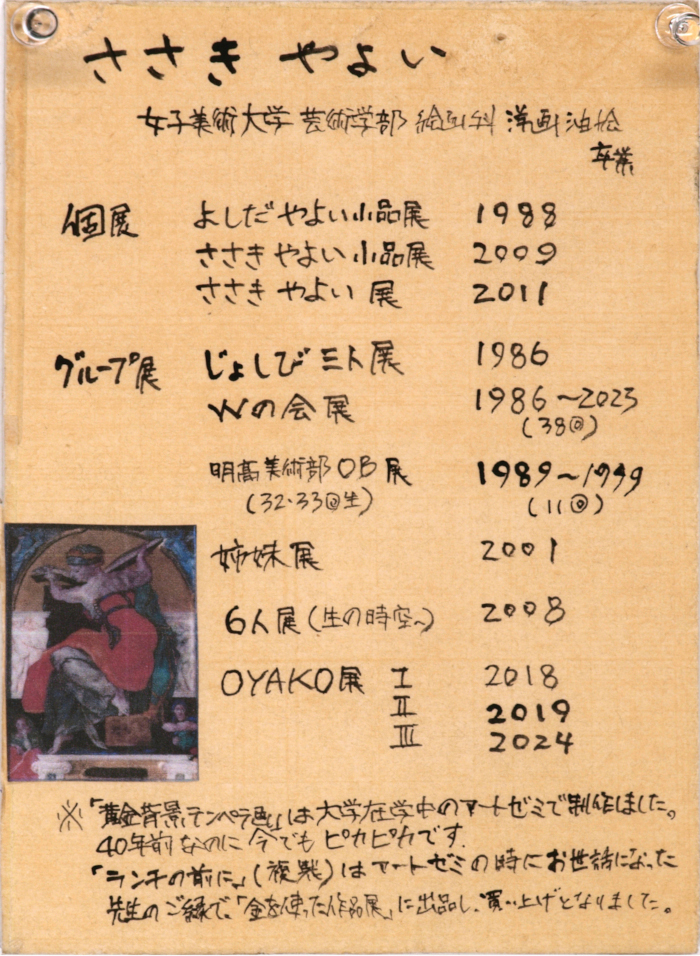 ささき やよい
女子美術大学 芸術学部 絵画科 洋画油絵
卒業
個展 よしだやよい小品展 1988
ささきやよい小品展 2009
ささきやよい 展 2011
グループ展 じょしびミト展 1986
Wの会展 1986〜2023
(38回)
明高美術部OB展 1989〜1999
(32・33回生) (11回)
姉妹展 2001
6人展(生の時空〜) 2008
OYAKO展 I 2018
II 2019
III 2024
※「黄金背景テンペラ画」は大学在学中のアートゼミで制作しました。
40年前なのに今でもピカピカです.
「ランチの前に」(複製)はアートゼミの時にお世話になった
先生のご縁で、「金を使った作品展」に出品し、買い上げとなりました。